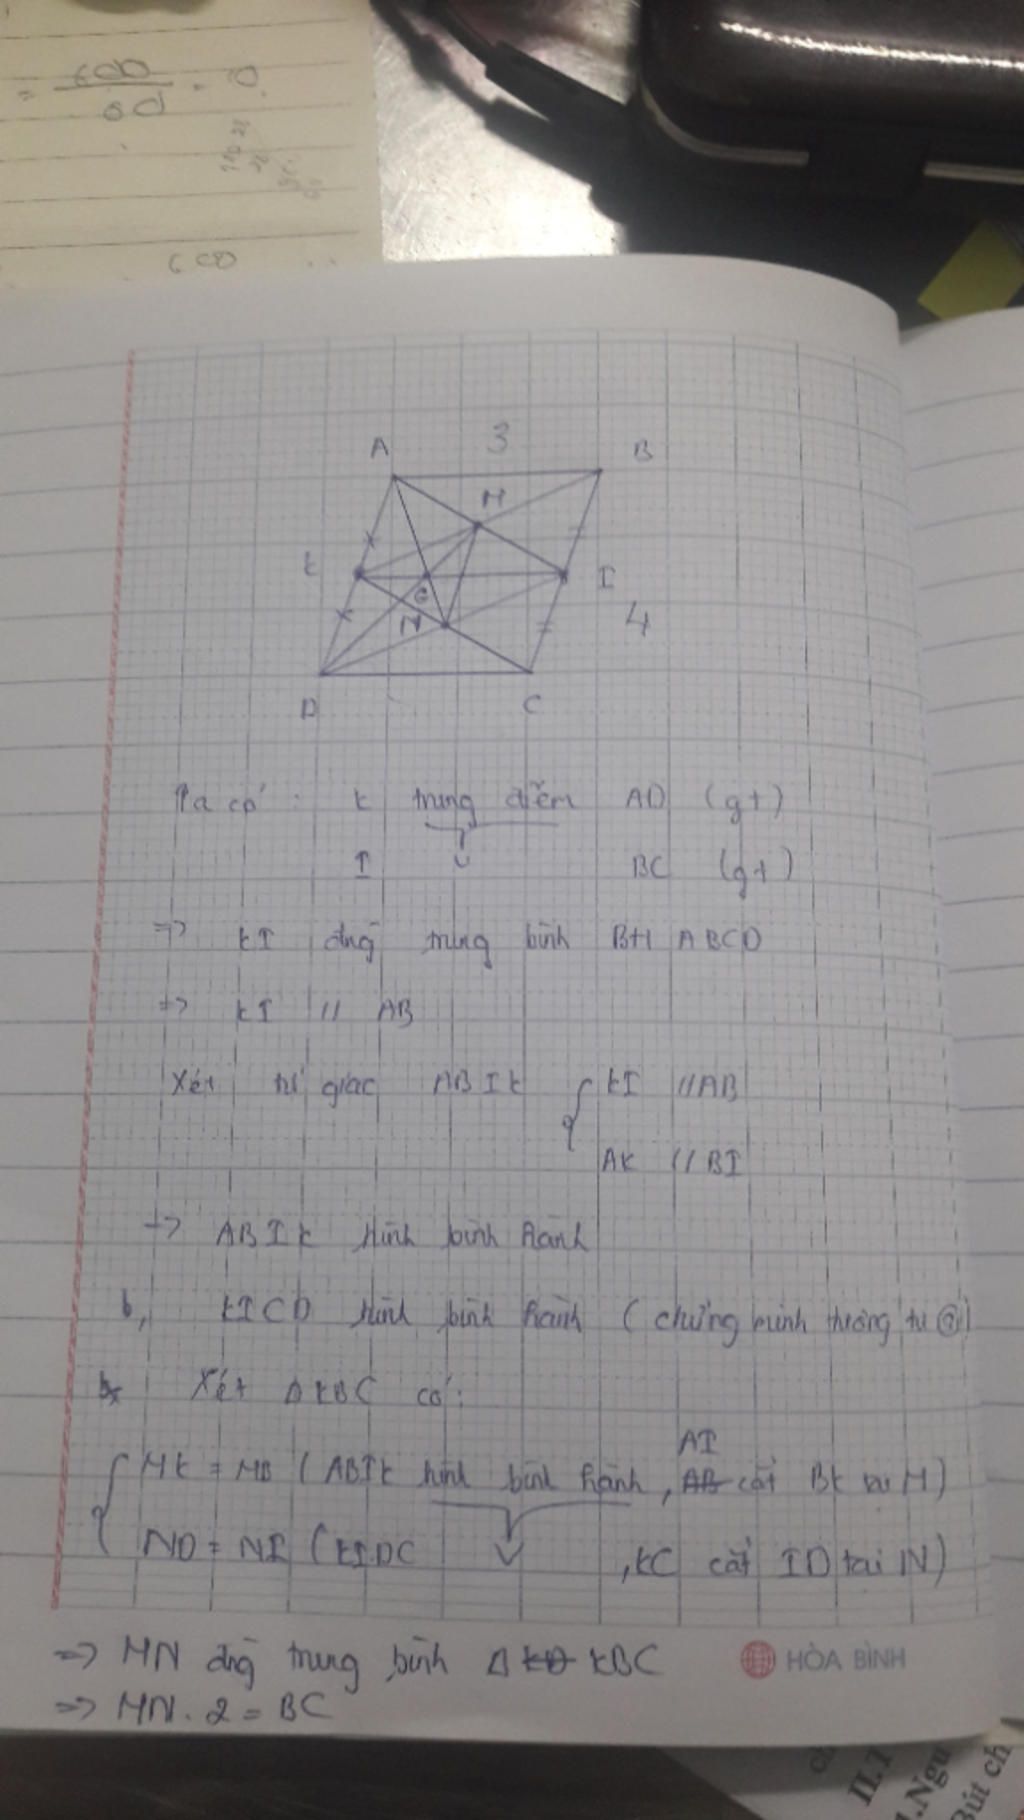 600
A 3 B
M
K I
G
N 4
D C
Ta có : K trung điểm AD (gt)
I BC (gt)
=> KI đng trung bình BH ABCD
=> KI // AB
Xét tứ giác ABIK { KI // AB
AK // BI
=> ABIK hình bình hành
b, KICD hình bình hành ( chứng minh tương tự a)
Xét Δ KBC có:
AI
MK = MB ( ABIK hình bình hành, AB cắt BK tại M)
ND = NI ( KIDC , KC cắt ID tại N)
=> MN đng trung bình Δ KD KBC
HÒA BÌNH
=> MN. 2 = BC
II.1
Bút ch